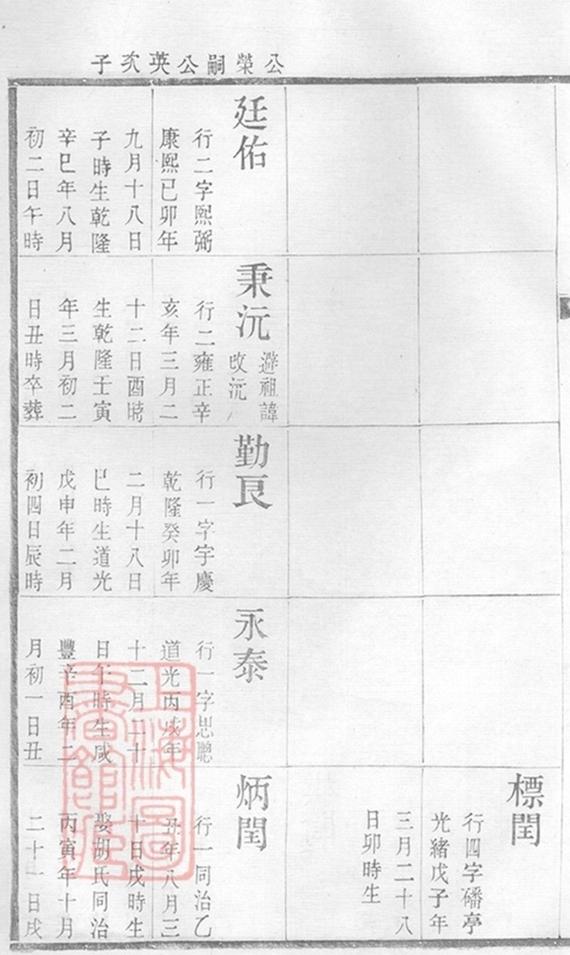 公榮嗣公英次子
標閏
行四字磻亭
光緒戊子年
三月二十八
日卯時生
廷佑
行二字熙弼
康熙己卯年
九月十八日
子時生乾隆
辛巳年八月
初二日午時
秉沅
避祖諱
改沅
行二雍正辛
亥年三月二
十二日酉時
生乾隆壬寅
年三月初二
日丑時卒葬
勤艮
行一字字慶
乾隆癸卯年
二月十八日
巳時生道光
戊申年二月
初四日辰時
永泰
行一字思聰
道光丙戌年
十二月二十
日午時生咸
豐辛酉年二
月初一日丑
炳閏
行一同治乙
丑年八月三
十日戌時生
娶胡氏同治
丙寅年十月
二十一日戌
上海圖書館藏